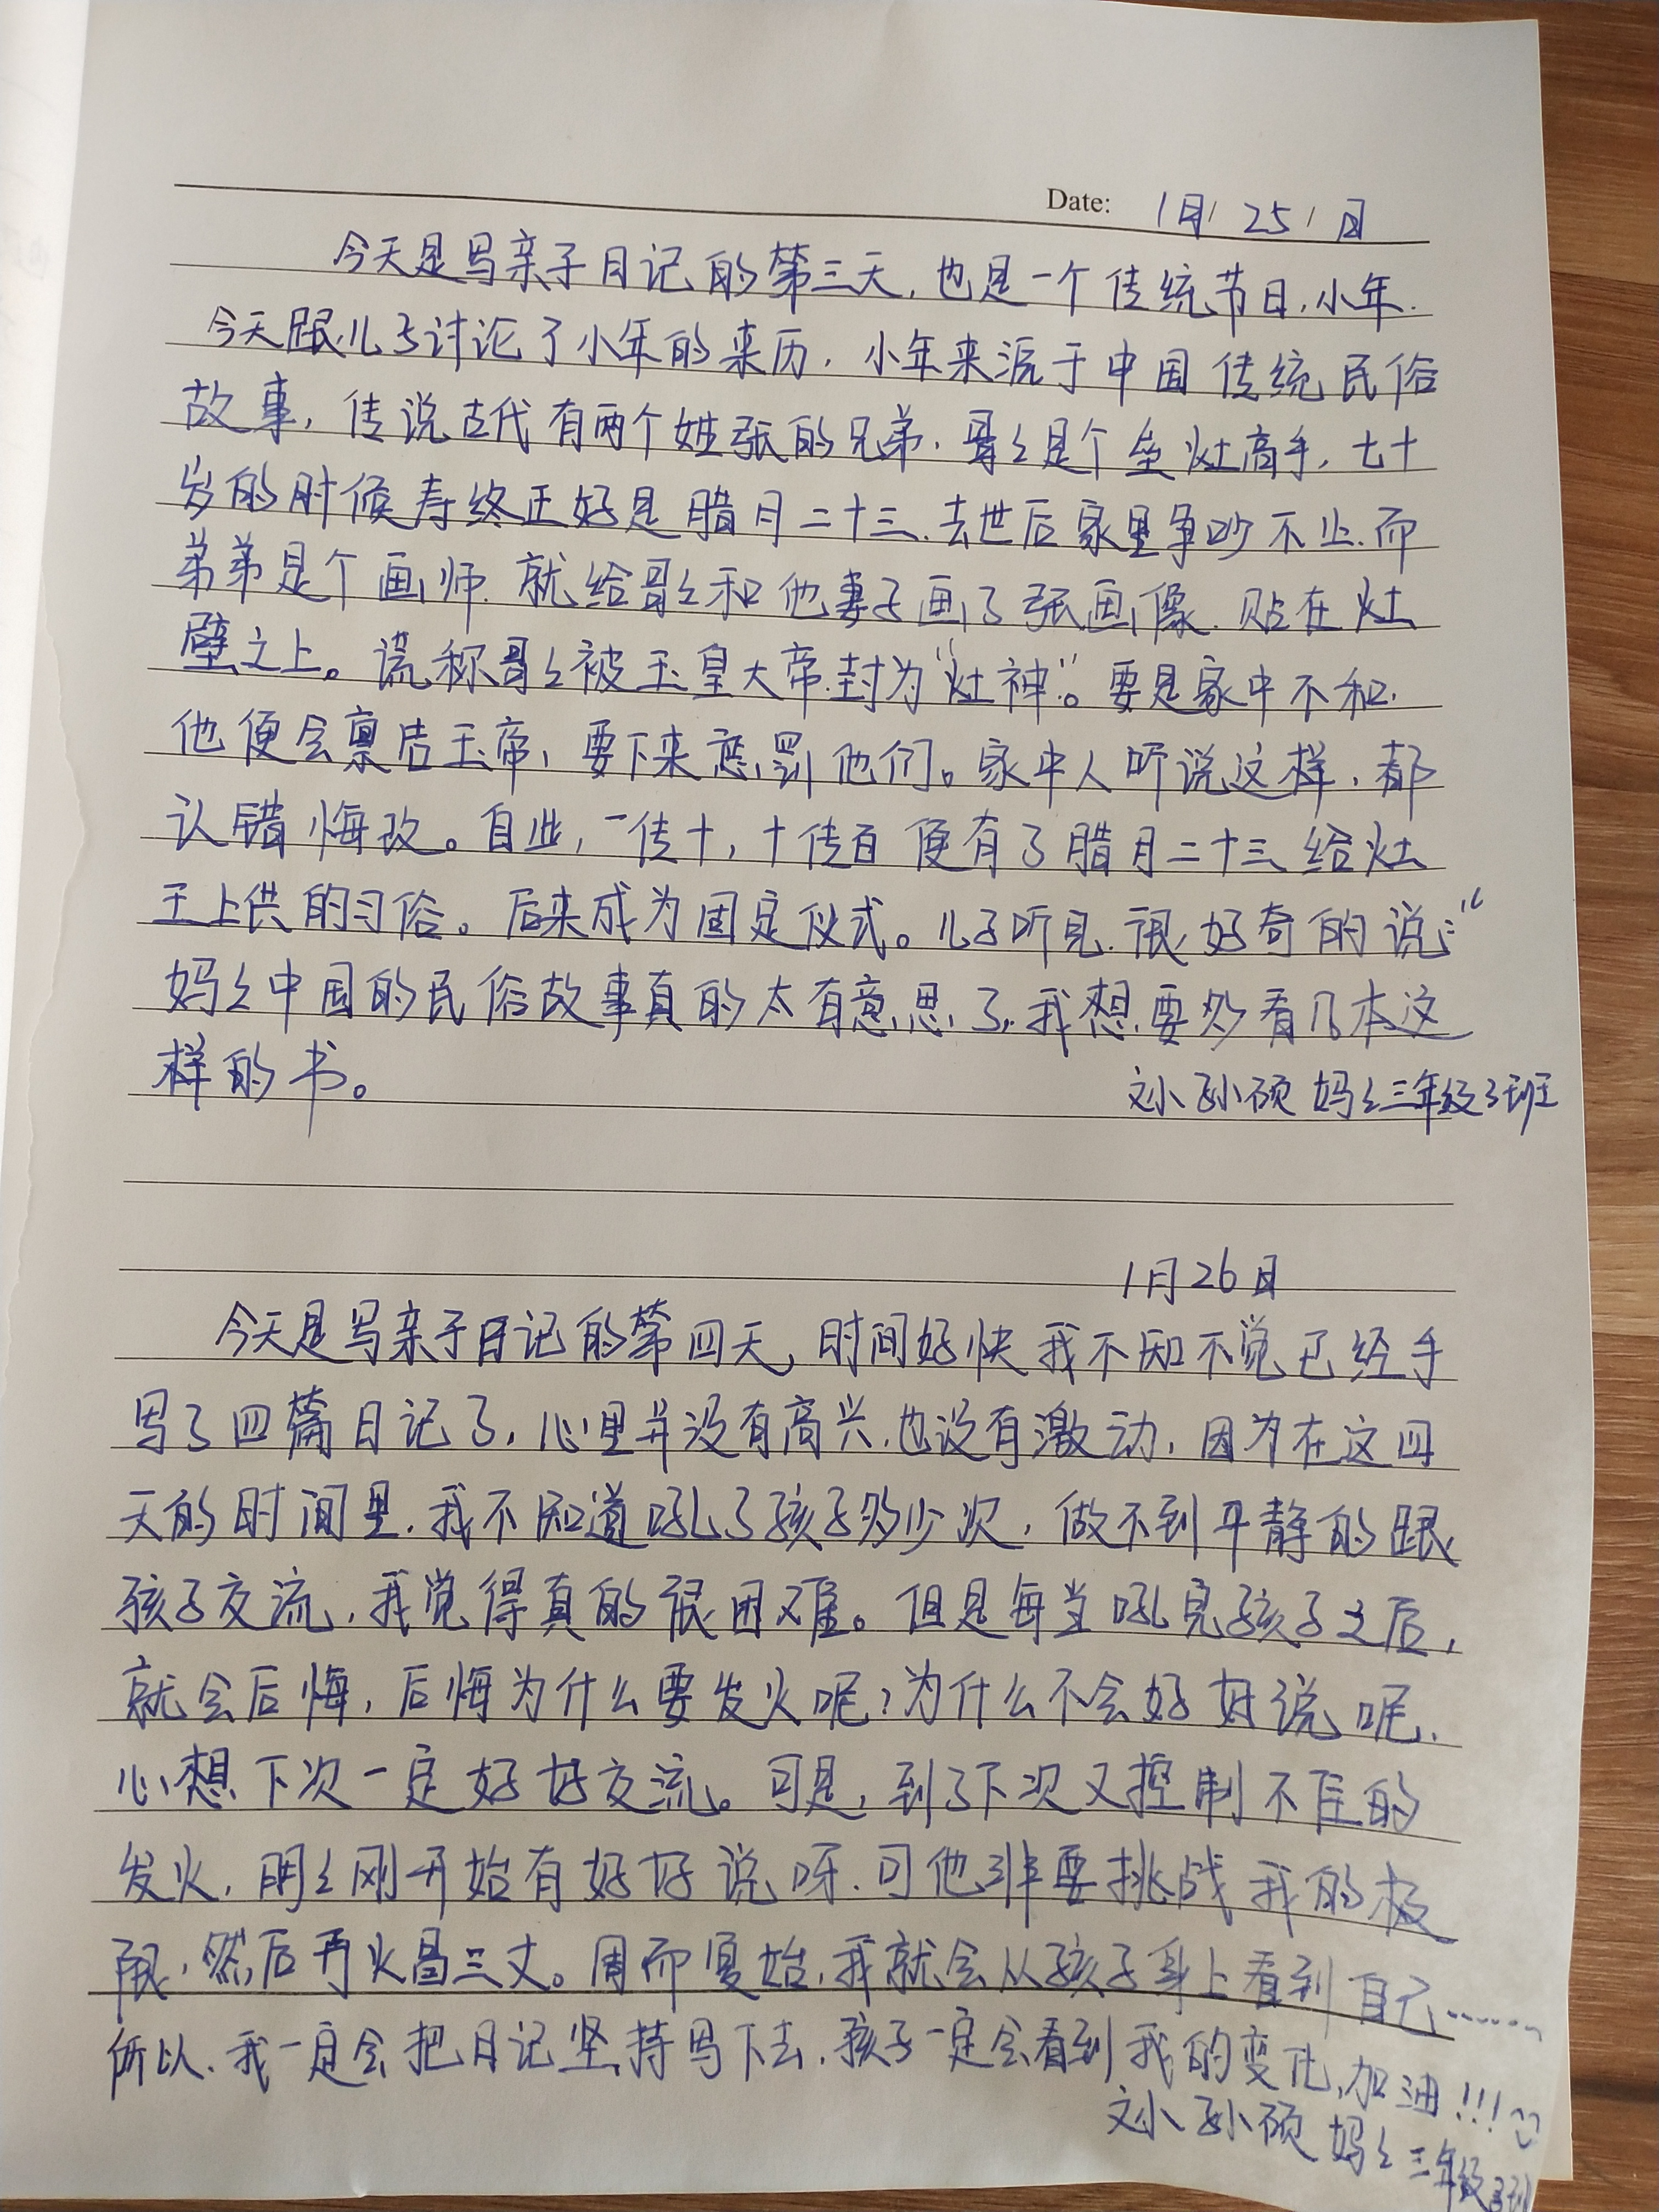 Date: 1月/ 25/ 日
今天是写亲子日记的第三天,也是一个传统节日,小年.
今天跟儿子讨论了小年的来历,小年来源于中国传统民俗
故事,传说古代有两个姓张的兄弟.哥々是个垒灶高手,七十
岁的时候寿终正好是腊月二十三.去世后家里争吵不止.而
弟弟是个画师.就给哥々和他妻子画了张画像.贴在灶
壁之上。谎称哥々被玉皇大帝.封为“灶神”。要是家中不和.
他便会禀告玉帝,要下来惩罚他们。家中人听说这样,都
认错悔改。自此,一传十,十传百便有了腊月二十三给灶
王上供的习俗。后来成为固定仪式。儿子听见.很好奇的说:“
妈々中国的民俗故事真的太有意思了.我想要多看几本这
样的书。
刘孙硕妈々三年级3班
1月26日
今天是写亲子日记的第四天,时间好快我不知不觉已经手
写了四篇日记了,心里并没有高兴.也没有激动,因为在这四
天的时间里.我不知道吼了孩子多少次,做不到平静的跟
孩子交流,我觉得真的很困难。但是每当吼完孩子之后,
就会后悔,后悔为什么要发火呢?为什么不会好好说呢.
心想下次一定好好交流。可是,到了下次又控制不住的
发火,明々刚开始有好好说呀.可他非要挑战我的极
限,然后再火冒三丈。周而复始,我就会从孩子身上看到自己……
所以.我一定会把日记坚持写下去.孩子一定会看到我的变化,加油!!!
刘孙硕妈々三年级3班